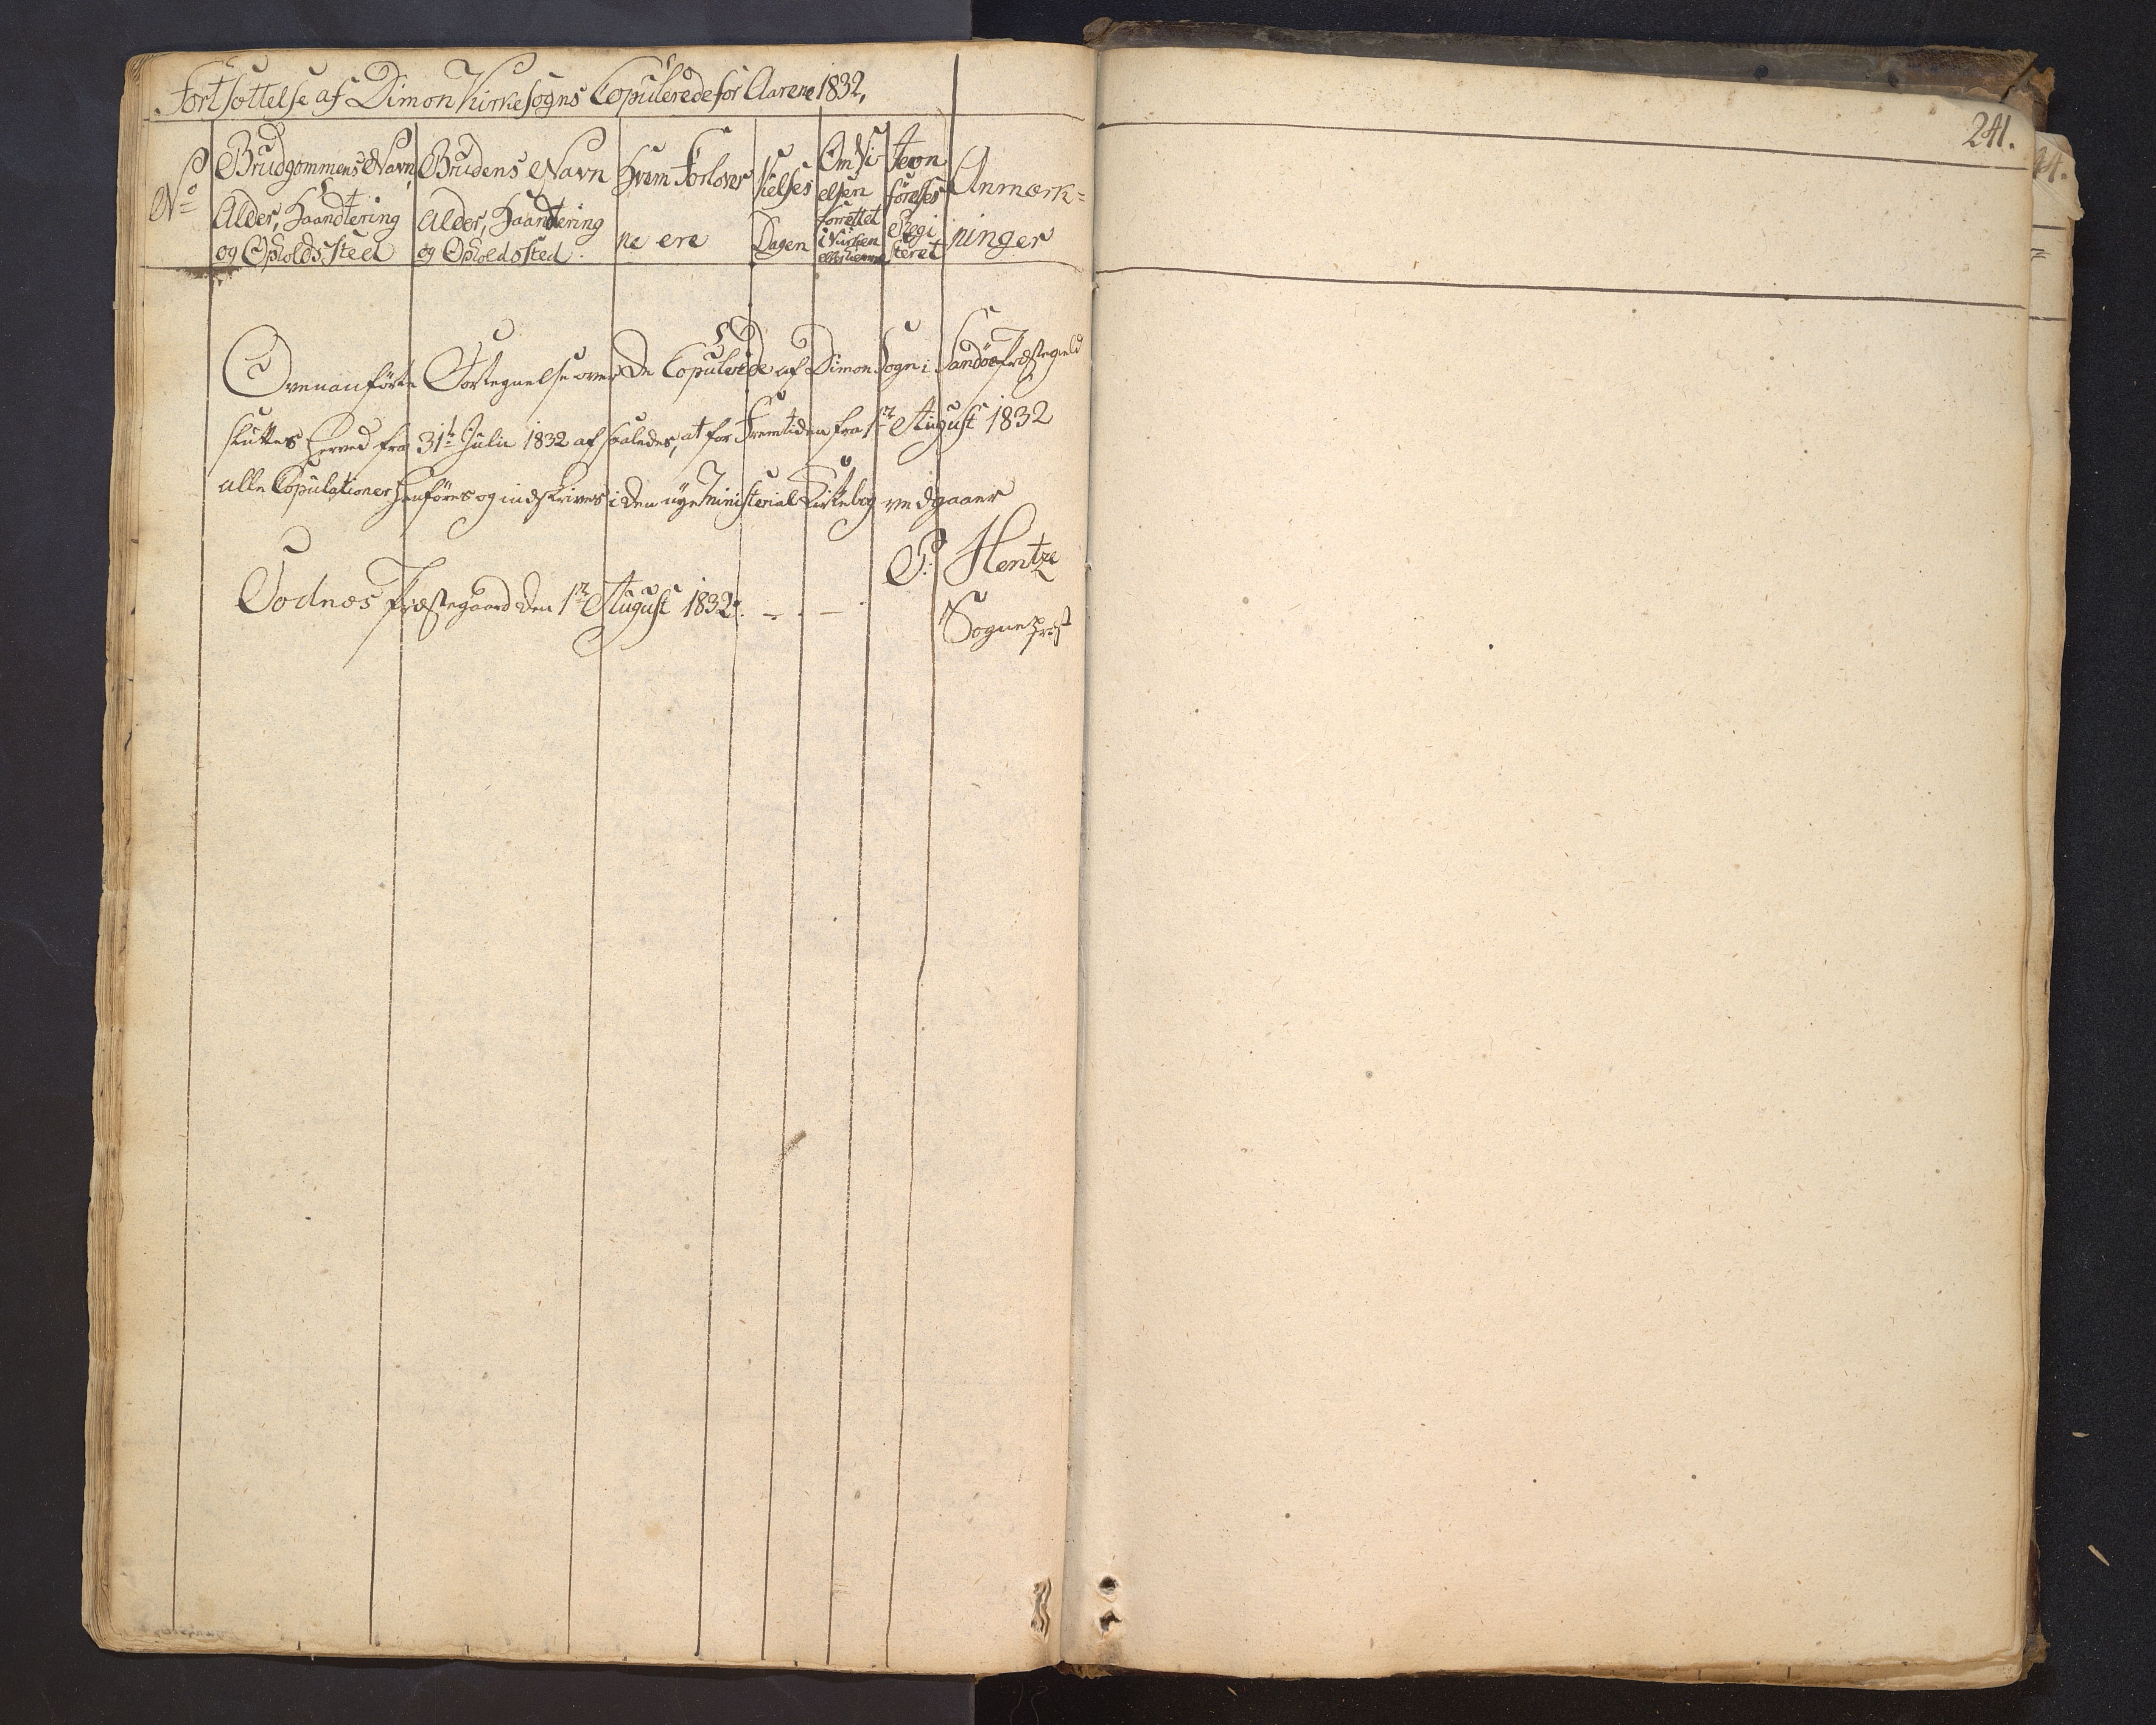 Fortsættelse af Dimon Kirkesogns Copulerede for Aarene 1832,
No
Brudgommens Navn,
Alder, Haandtering
og Opholds Sted
Brudens Navn
Alder, Haandtering
og Opholdssted.
Hvem Forlover
ne ere
Vielses
Dagen
Om Vi
elsen
forrettet
i Kirken
eller hiemme
Jevn
förelses
Regi
steret
Anmærk=
ninger
Ovenanförte Fortegnelse over De Copulerede af Dimon Sogn i Sandöe Præstegield
sluttes herved fra 31te Julii 1832 af saaledes, at for Fremtiden fra 1ste August 1832
alle Copulationer henföres og indskrives i den nye Ministerial Kirkebog vedgaaer
P: Hentze
Sognepræst
Todnes Præstegaard den 1ste August 1832.
241.